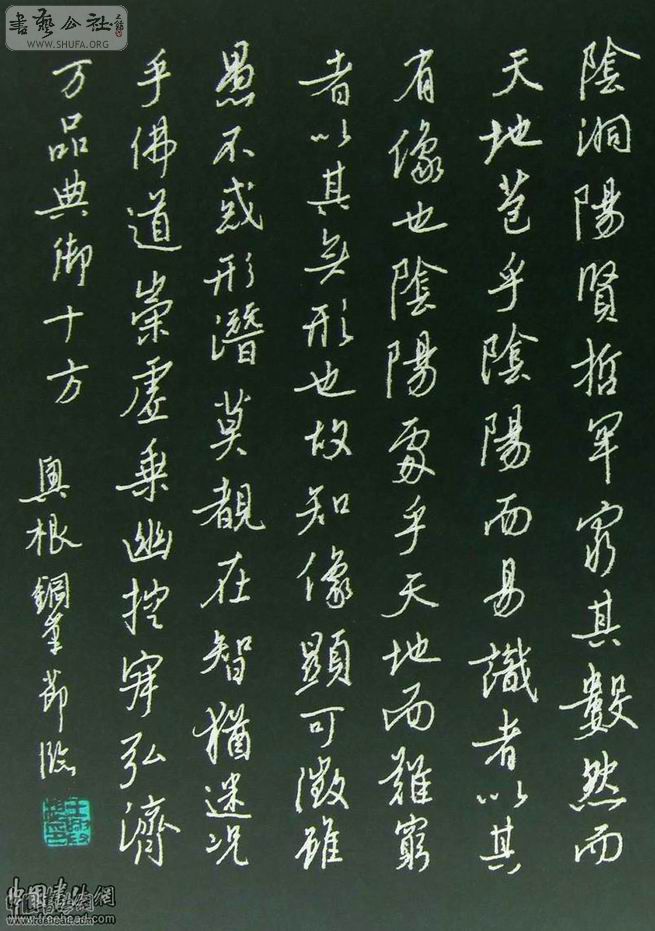 陰洞陽賢哲罕窮其數然而
天地苞乎陰陽而易識者以其
有像也陰陽處乎天地而難窮
者以其無形也故知像顯可徵雖
愚不惑形潛莫覩在智猶迷况
乎佛道崇虛乘幽控寂弘濟
万品典御十方
興根鋼筆節臨
書藝公社
WWW.SHUFA.ORG
中国书法網
www.freehead.com